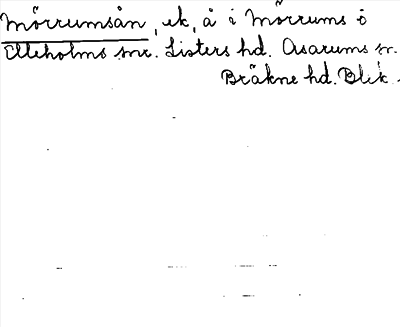 Mörrumsån, ek, å i Mörrums o
Elleholms snr. Listers hd. Asarums sn.
Bräkne hd. Blek.